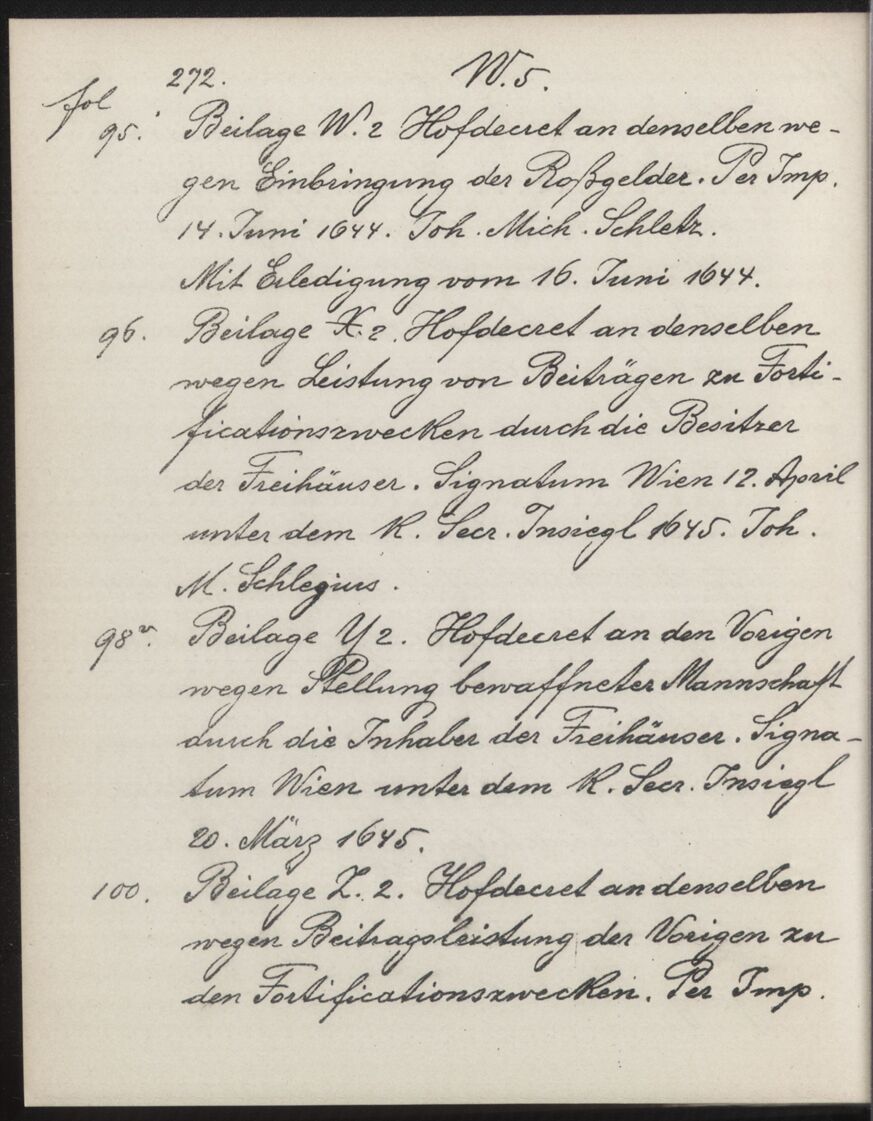 272. W. 5.
fol
95. Beilage W. 2 Hofdecret an denselben we-
gen Einbringung der Roßgelder. Per Imp.
14. Juni 1644. Joh. Mich. Schletz.
Mit Erledigung vom 16. Juni 1644.
96. Beilage X. 2. Hofdecret an denselben
wegen Leistung von Beiträgen zu Forti-
ficationszwecken durch die Besitzer
der Freihäuser. Signatum Wien 12. April
unter dem K. Secr. Insiegl 1645. Joh.
M. Schlegius.
98v. Beilage Y 2. Hofdecret an den Vorigen
wegen Stellung bewaffneter Mannschaft
durch die Inhaber der Freihäuser. Signa-
tum Wien unter dem K. Secr. Insiegl
20. März 1645.
100. Beilage Z. 2. Hofdecret an denselben
wegen Beitragsleistung der Vorigen zu
den Fortificationszwecken. Per Imp.